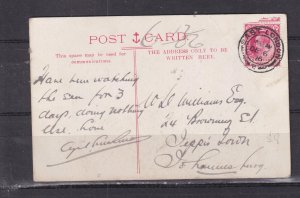 POST CARD
This space may be used for
communications.
THE ADDRESS ONLY TO BE
WRITTEN HERE.
EAST LONDON
Have been watching
the sea for 3
days, doing nothing
else. Love
W. D. Williams Esq.
24 Browning St
Jeppes Town
Johannesburg